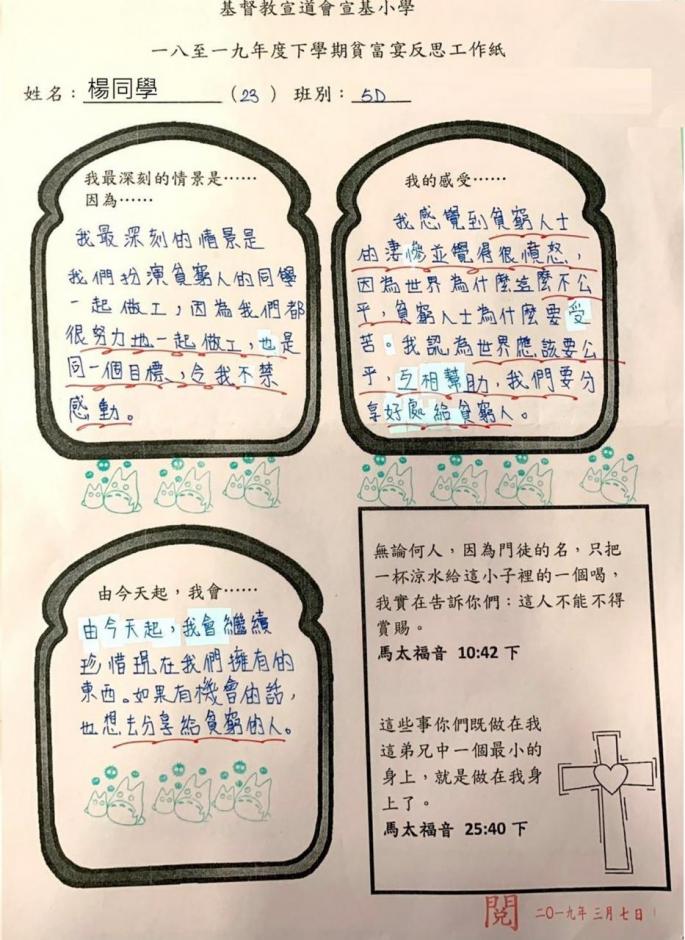 基督教宣道會宣基小學
一八至一九年度下學期貧富宴反思工作紙
姓名：楊同學（23）班別：5D
我最深刻的情景是……
因為……
我最深刻的情景是
我們扮演貧窮人的同學
一起做工，因為我們都
很努力地一起做工，也是
同一個目標，令我不禁
感動。
我的感受……
我感覺到貧窮人士
的淒慘並覺得很憤怒，
因為世界為什麼這麼不公
平，貧窮人士為什麼要受
苦。我認為世界應該要公
平，互相幫助，我們要分
享好處給貧窮人。
由今天起，我會……
由今天起，我會繼續
珍惜現在我們擁有的
東西。如果有機會的話，
也想去分享給貧窮的人。
無論何人，因為門徒的名，只把
一杯涼水給這小子裡的一個喝，
我實在告訴你們：這人不能不得
賞賜。
馬太福音 10:42 下
這些事你們既做在我
這弟兄中一個最小的
身上，就是做在我身
上了。
馬太福音 25:40 下
閱 二〇一九年三月七日